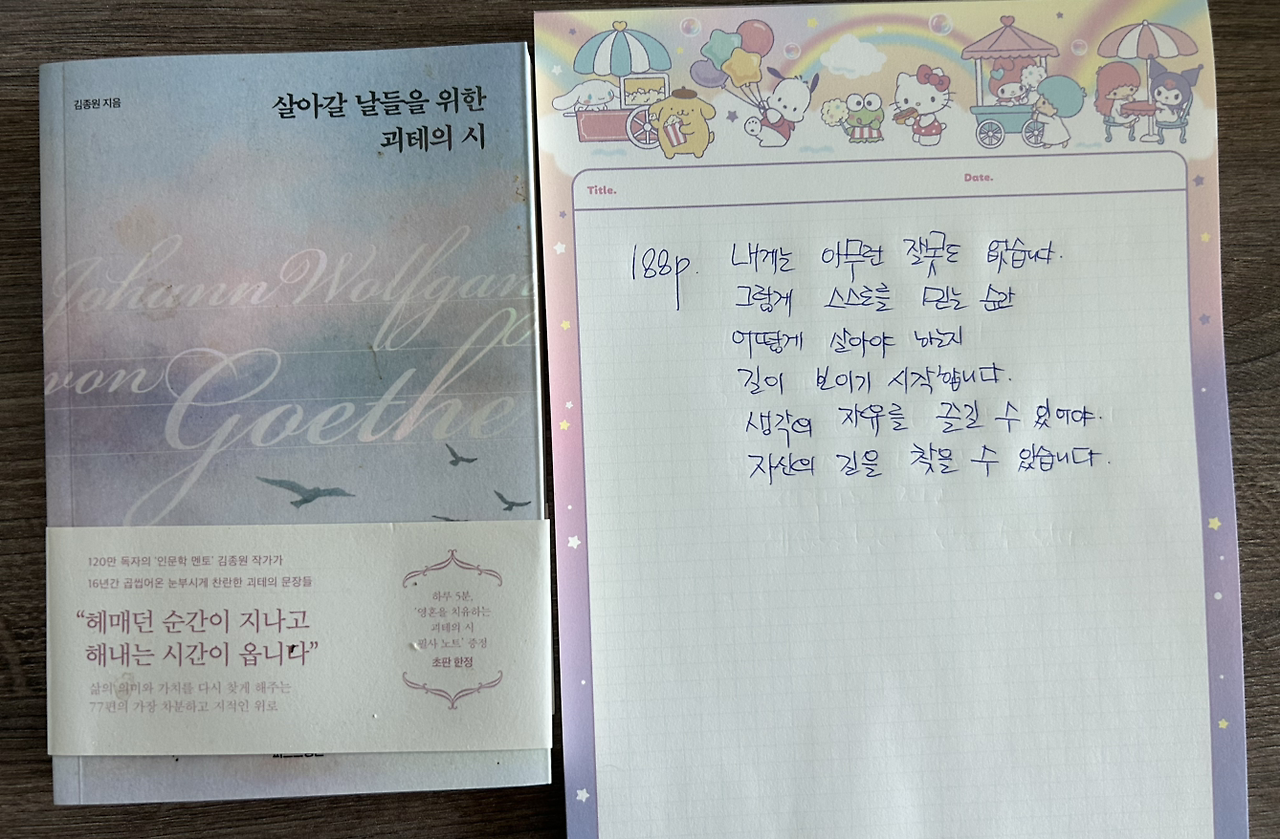 김종원 지음
살아갈 날들을 위한
괴테의 시
Johann Wolfgang
von Goethe
120만 독자의 '인문학 멘토' 김종원 작가가
16년간 곱씹어온 눈부시게 찬란한 괴테의 문장들
“헤매던 순간이 지나고
해내는 시간이 옵니다”
삶의 의미와 가치를 다시 찾게 해주는
77편의 가장 차분하고 지적인 위로
하루 5분,
'영혼을 치유하는
괴테의 시
필사 노트' 증정
초판 한정
Title.
Date.
188p. 내게는 아무런 잘못도 없습니다.
그렇게 스스로를 믿는 순간
어떻게 살아야 하는지
길이 보이기 시작합니다.
생각의 자유를 즐길 수 있어야.
자신의 길을 찾을 수 있습니다.